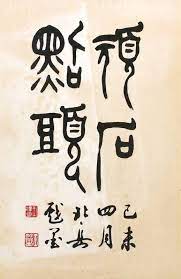 頑石
點頭
己未
四月
戲墨